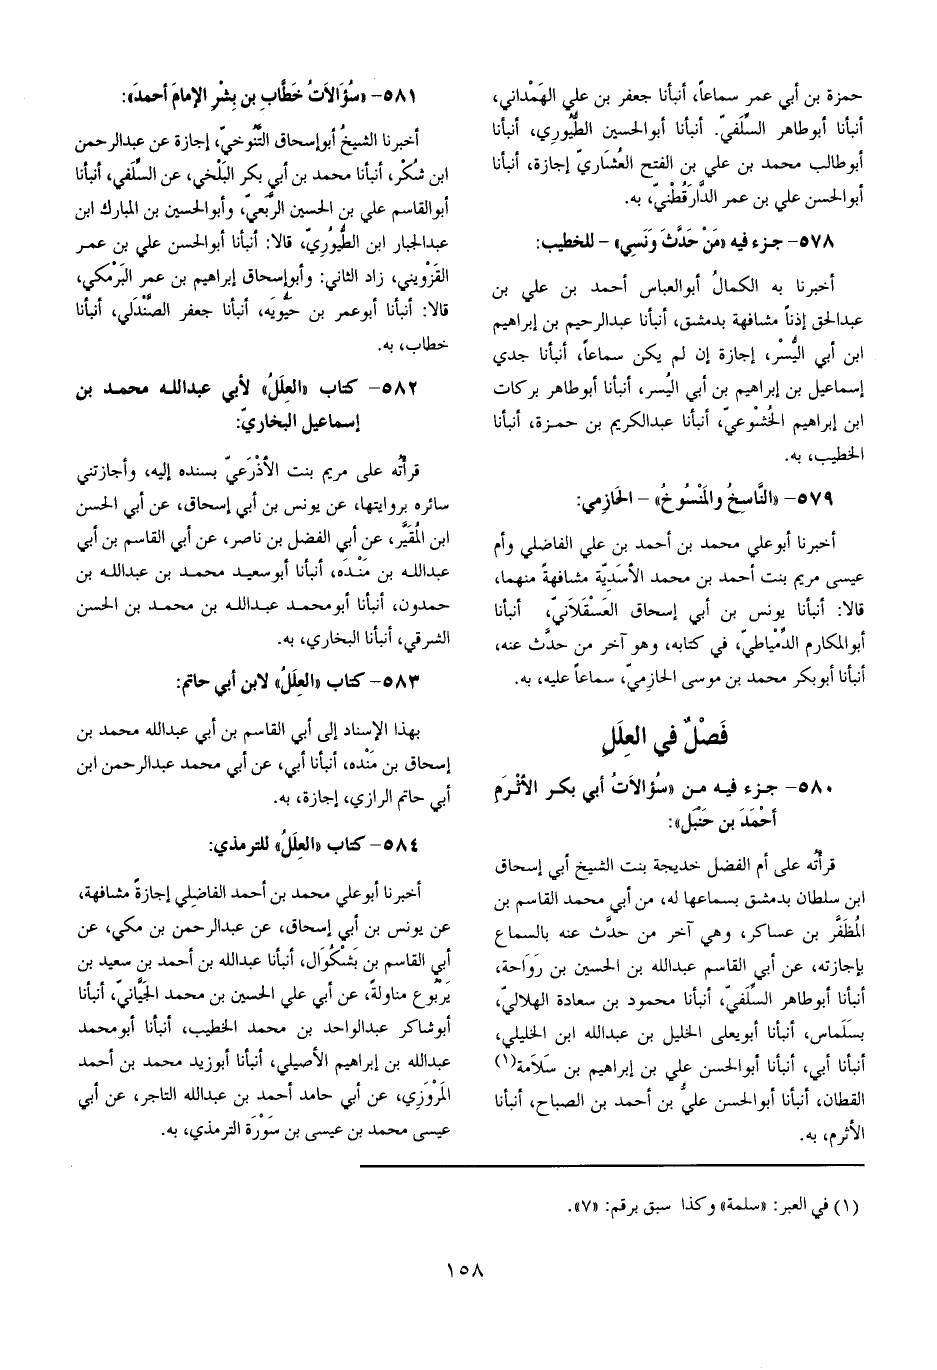 حمزة بن أبي عمر سماعاً، أنبأنا جعفر بن علي الهَمْداني،
أنبأنا أبوطاهر السِّلَفيّ. أنبأنا أبوالحسين الطُّيُوري، أنبأنا
أبوطالب محمد بن علي بن الفتح العُشَاريّ إجازة، أنبأنا
أبوالحسن علي بن عمر الدَّارَقُطْنيّ، به.
٥٧٨- جزء فيه «مَنْ حَدَّثَ وَنَسِي» - للخطيب:
أخبرنا به الكمالُ أبوالعباس أحمد بن علي بن
عبدالحق إذناً مشافهة بدمشق، أنبأنا عبدالرحيم بن إبراهيم
ابن أبي اليُسْر، إجازة إن لم يكن سماعاً، أنبأنا جدي
إسماعيل بن إبراهيم بن أبي اليُسر، أنبأنا أبوطاهر بركات
ابن إبراهيم الخُشوعيّ، أنبأنا عبدالكريم بن حمزة، أنبأنا
الخطيب، به.
٥٧٩- «النَّاسِخُ والمَنْسُوخُ» - الحَازِمي:
أخبرنا أبوعلي محمد بن أحمد بن علي الفاضلي وأم
عيسى مريم بنت أحمد بن محمد الأسَديّة مشافهةً منهما،
قالا: أنبأنا يونس بن أبي إسحاق العَسْقَلاَنيّ، أنبأنا
أبوالمكارم الدِّمْياطيّ، في كتابه، وهو آخر من حدَّث عنه،
أنبأنا أبوبكر محمد بن موسى الحازميّ، سماعاً عليه، به.
فَصْلٌ في العِلَلِ
٥٨٠- جزء فيه من «سُؤالاَتُ أبي بكر الأثْرَمِ
أحْمَدَ بن حَنْبَل»:
قرأتُه على أم الفضل خديجة بنت الشيخ أبي إسحاق
ابن سلطان بدمشق بسماعها له، من أبي محمد القاسم بن
المُظَفَّر بن عساكر، وهي آخر من حدَّث عنه بالسماع
بإجازته، عن أبي القاسم عبدالله بن الحسين بن رَوَاحة،
أنبأنا أبوطاهر السِّلَفيّ، أنبأنا محمود بن سعادة الهلاليّ،
بسَلَماس، أنبأنا أبويعلى الخليل بن عبدالله ابن الخليلي،
أنبأنا أبي، أنبأنا أبوالحسن علي بن إبراهيم بن سَلاَمة(١)
القطان، أنبأنا أبوالحسن عليُّ بن أحمد بن الصباح، أنبأنا
الأثرم، به.
٥٨١- «سُؤَالاَتُ خَطَّابِ بن بِشْرِ الإمامَ أحمدَ»:
أخبرنا الشيخُ أبوإسحاق التَّنُوخيّ، إجازة عن عبدالرحمن
ابن شُكْر، أنبأنا محمد بن أبي بكر البَلْخي، عن السلَفي، أنبأنا
أبوالقاسم علي بن الحسين الرَّبَعيّ، وأبوالحسين بن المبارك ابن
عبدالجبار ابن الطُّيُوريّ، قالا: أنبأنا أبوالحسن علي بن عمر
القَزْويني، زاد الثاني: وأبوإسحاق إبراهيم بن عمر البَرْمكي،
قالا: أنبأنا أبوعمر بن حَيُّويَه، أنبأنا جعفر الصَّنْدَلي، أنبأنا
خطاب، به.
٥٨٢- كتاب «العِلَلُ» لأبي عبدالله محمد بن
إسماعيل البخاريّ:
قرأتُه على مريم بنت الأذْرَعيّ بسنده إليه، وأجازتني
سائره بروايتها، عن يونس بن أبي إسحاق، عن أبي الحسن
ابن المُقَيَّر، عن أبي الفضل بن ناصر، عن أبي القاسم بن أبي
عبدالله بن مَنْدَه، أنبأنا أبوسعيد محمد بن عبدالله بن
حمدون، أنبأنا أبومحمد عبدالله بن محمد بن الحسن
الشرقي، أنبأنا البخاري، به.
٥٨٣- كتاب «العِلَلُ» لابن أبي حاتم:
بهذا الإسناد إلى أبي القاسم بن أبي عبدالله محمد بن
إسحاق بن مَنْده، أنبأنا أبي، عن أبي محمد عبدالرحمن ابن
أبي حاتم الرازي، إجازة، به.
٥٨٤- كتاب «العِلَلُ» للترمذي:
أخبرنا أبوعلي محمد بن أحمد الفاضِلي إجازةً مشافهة،
عن يونس بن أبي إسحاق، عن عبدالرحمن بن مكي، عن
أبي القاسم بن بَشْكُوَال، أنبأنا عبدالله بن أحمد بن سعيد بن
يَرْبُوع مناولةً، عن أبي علي الحسين بن محمد الجَيَّانيّ، أنبأنا
أبوشاكر عبدالواحد بن محمد الخطيب، أنبأنا أبومحمد
عبدالله بن إبراهيم الأصيلي، أنبأنا أبوزيد محمد بن أحمد
المَرْوَزِي، عن أبي حامد أحمد بن عبدالله التاجر، عن أبي
عيسى محمد بن عيسى بن سَوْرَة الترمذي، به.
(١) في العبر: «سلمة» وكذا سبق برقم: «٧».
١٥٨